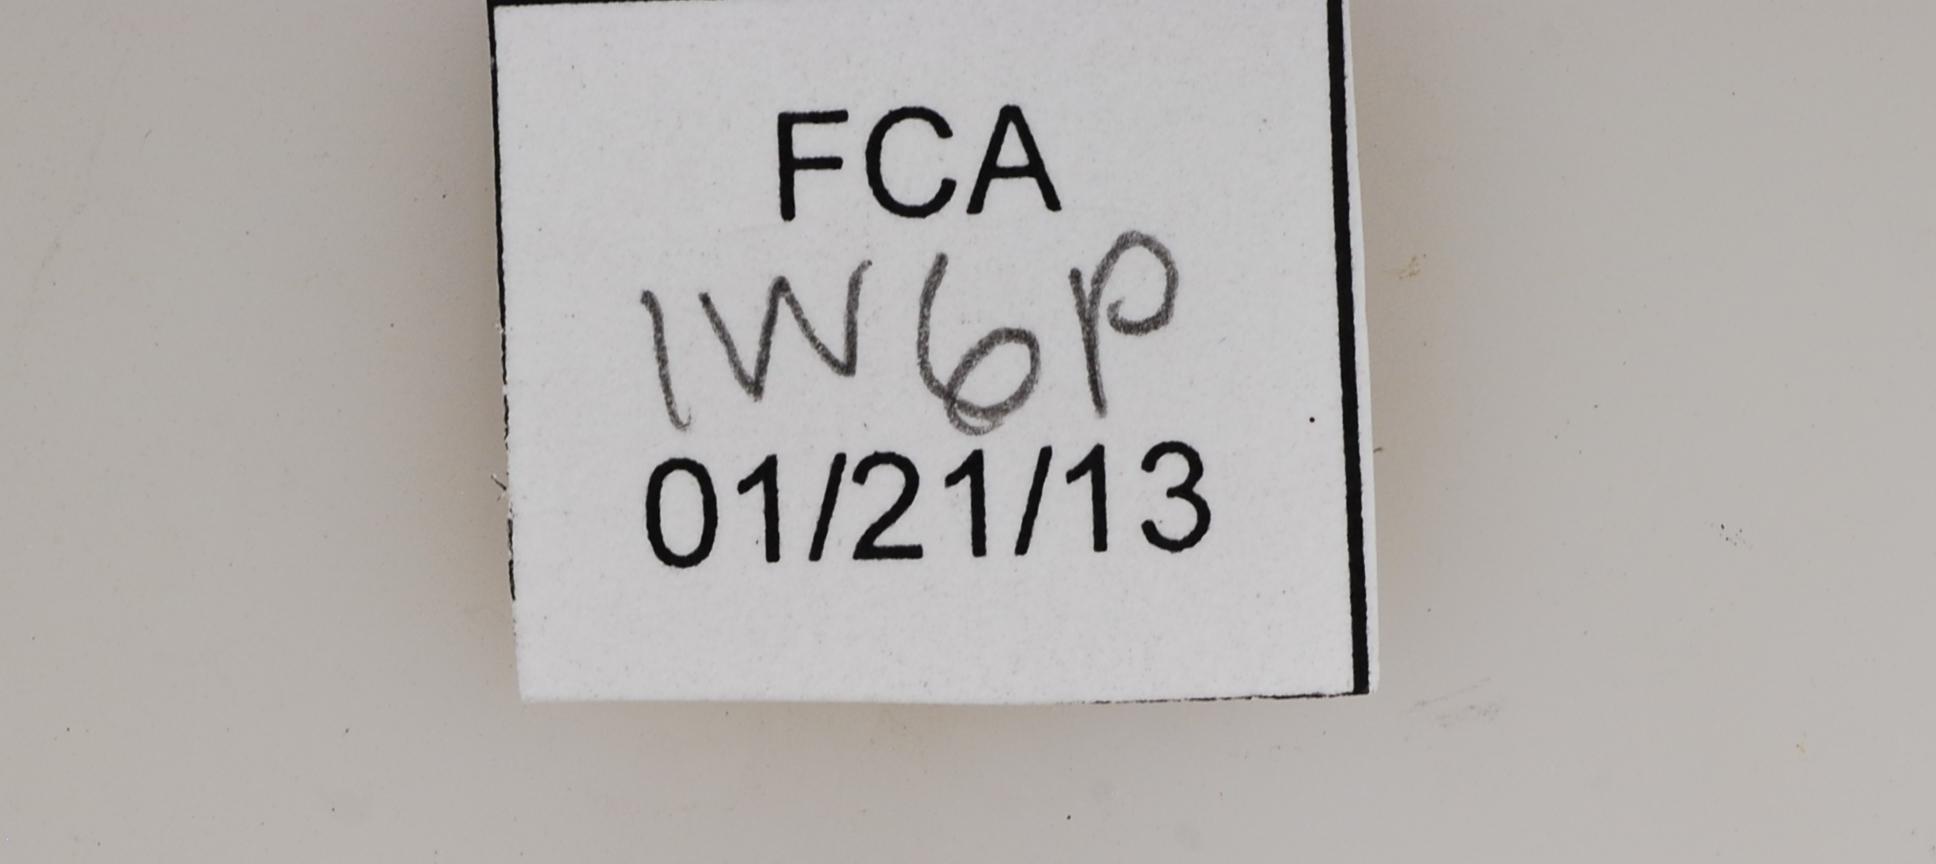 FCA
1W6P
01/21/13